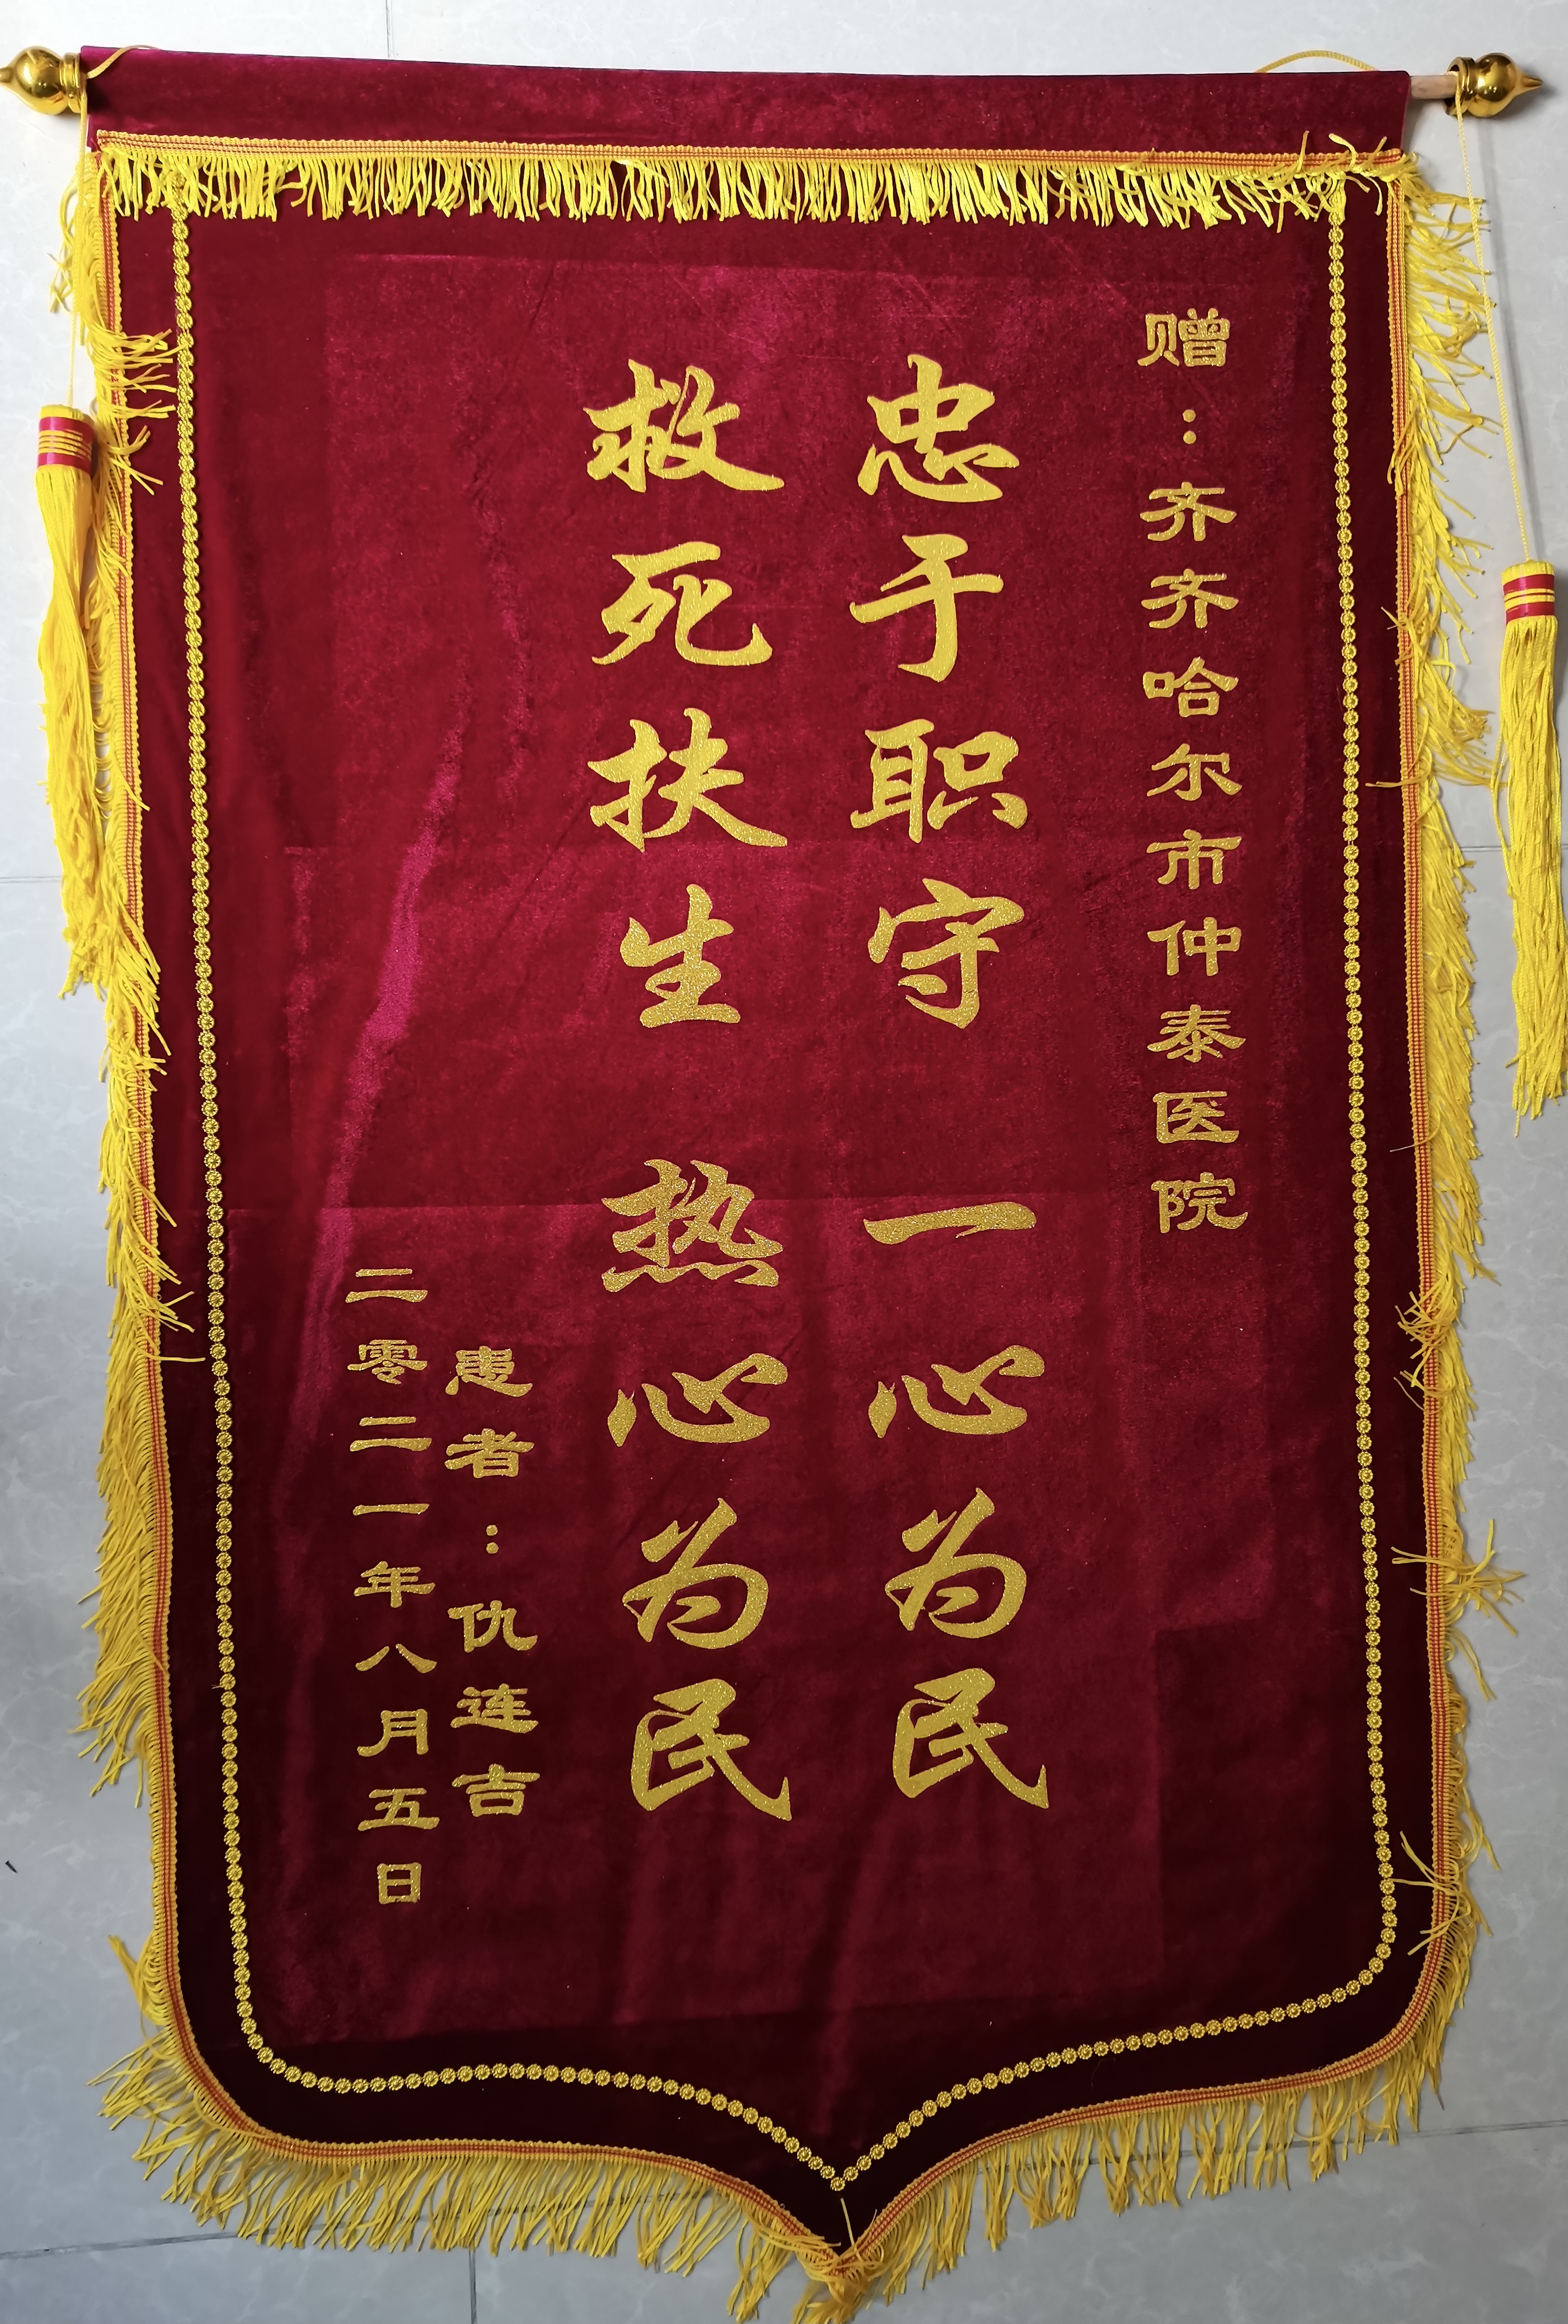 赠：齐齐哈尔市仲泰医院
忠于职守 一心为民
救死扶生 热心为民
患者：仇连吉
二零二一年八月五日